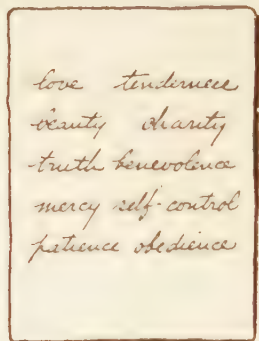 love tenderness
beauty charity
truth benevolence
mercy self-control
patience obedience